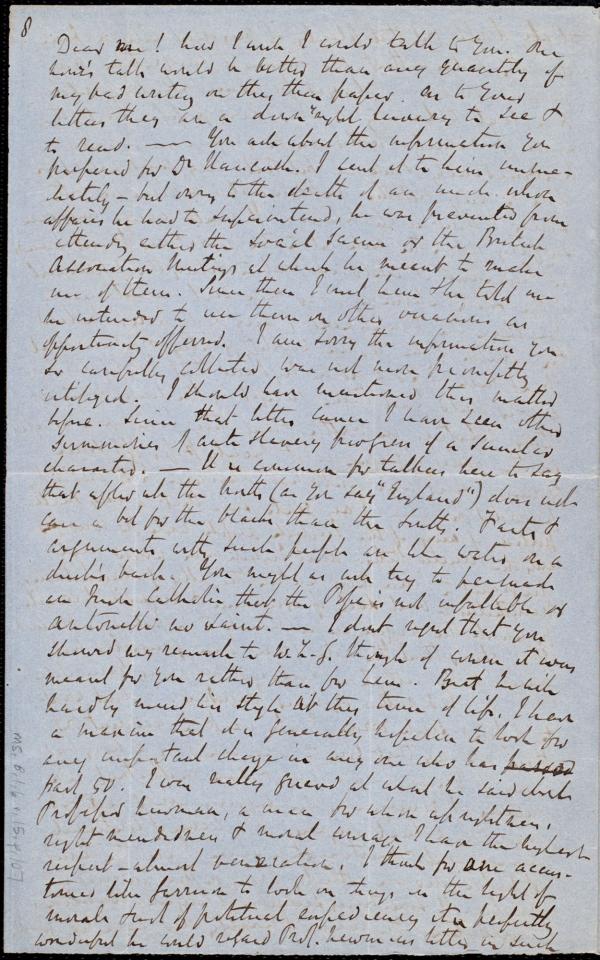 8
Dear me! how I wish I could talk to you. One
hour's talk would be better than any quantity of
my bad writing on this thin paper. As to your
letters they are a downright luxury to see &
to read. — You ask about the information you
prepared for Dr Hancock. I sent it to him imme-
diately – but owing to the death of an uncle whose
affairs he had to superintend, he was prevented from
attending either the Social Science or the British
Association Meetings at which he meant to make
use of them. Since then I met him & he told me
he intended to use them on other occasions as
opportunity offered. I am sorry the information you
so carefully collected was not more promptly
utilized. I should have mentioned this matter
before. Since that letter came I have seen other
summaries of anti slavery progress of a similar
character. — It is common for talkers here to say
that after all the North (as you say "England") does not
care a bit for the blacks than the South. Facts &
arguments with such people are like water on a
duck's back. You might as well try to persuade
an Irish Catholic that the Pope is not infallible or
Antonelli no saint. — I don't regret that you
showed my remarks to W.L.G. though of course it was
meant for you rather than for him. But he will
hardly mend his style at this time of life. I have
a maxim that it is generally hopeless to look for
any important change in any one who has passed
past 50. I was really grieved at what he said about
Professor Newman, a man for whose uprightness,
right mindedness & moral courage I have the highest
respect – almost veneration. I think for one accus-
tomed like Garrison to look on things in the light of
morals & not of political expediency it is perfectly
wonderful he could regard Prof. Newman's letter in such
MS. B.1.6 v.15, p.107